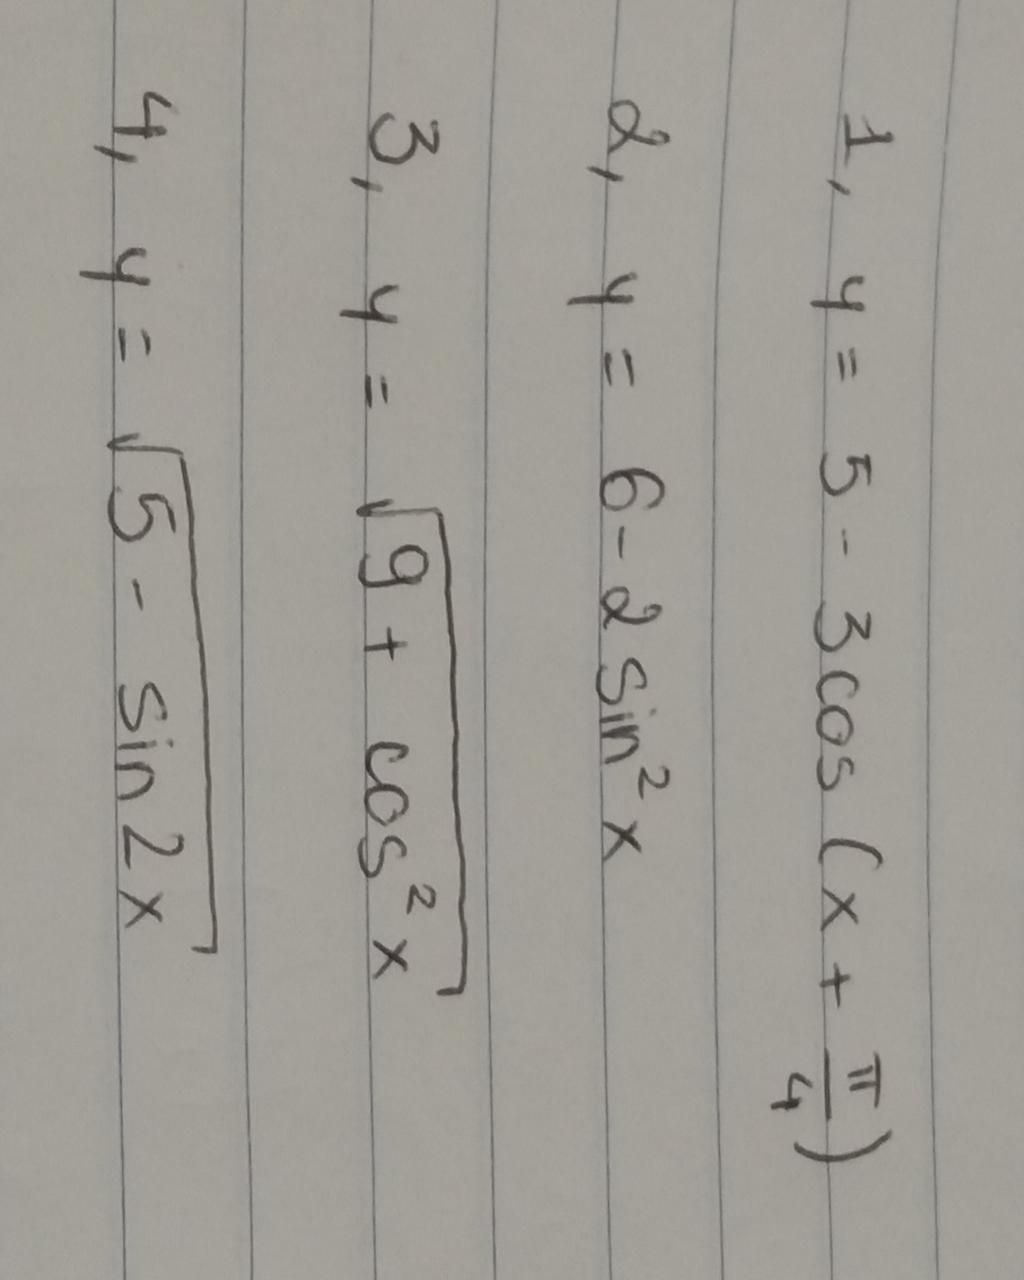 1, y = 5 - 3cos (x + π/4)
2, y = 6 - 2 sin² x
3, y = √(9 + cos² x)
4, y = √(5 - sin 2x)